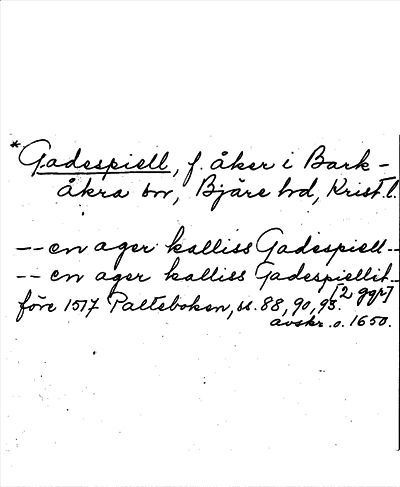 *Gadespiell, f. åker i Bark-
åkra sn, Bjäre hd, Krist. l.
-- en ager kalliss Gadespiell--
-- en ager kalliss Gadespiellit--
[2 ggr]
före 1517 Palteboken, ss. 88, 90, 93.
avskr. o. 1650.